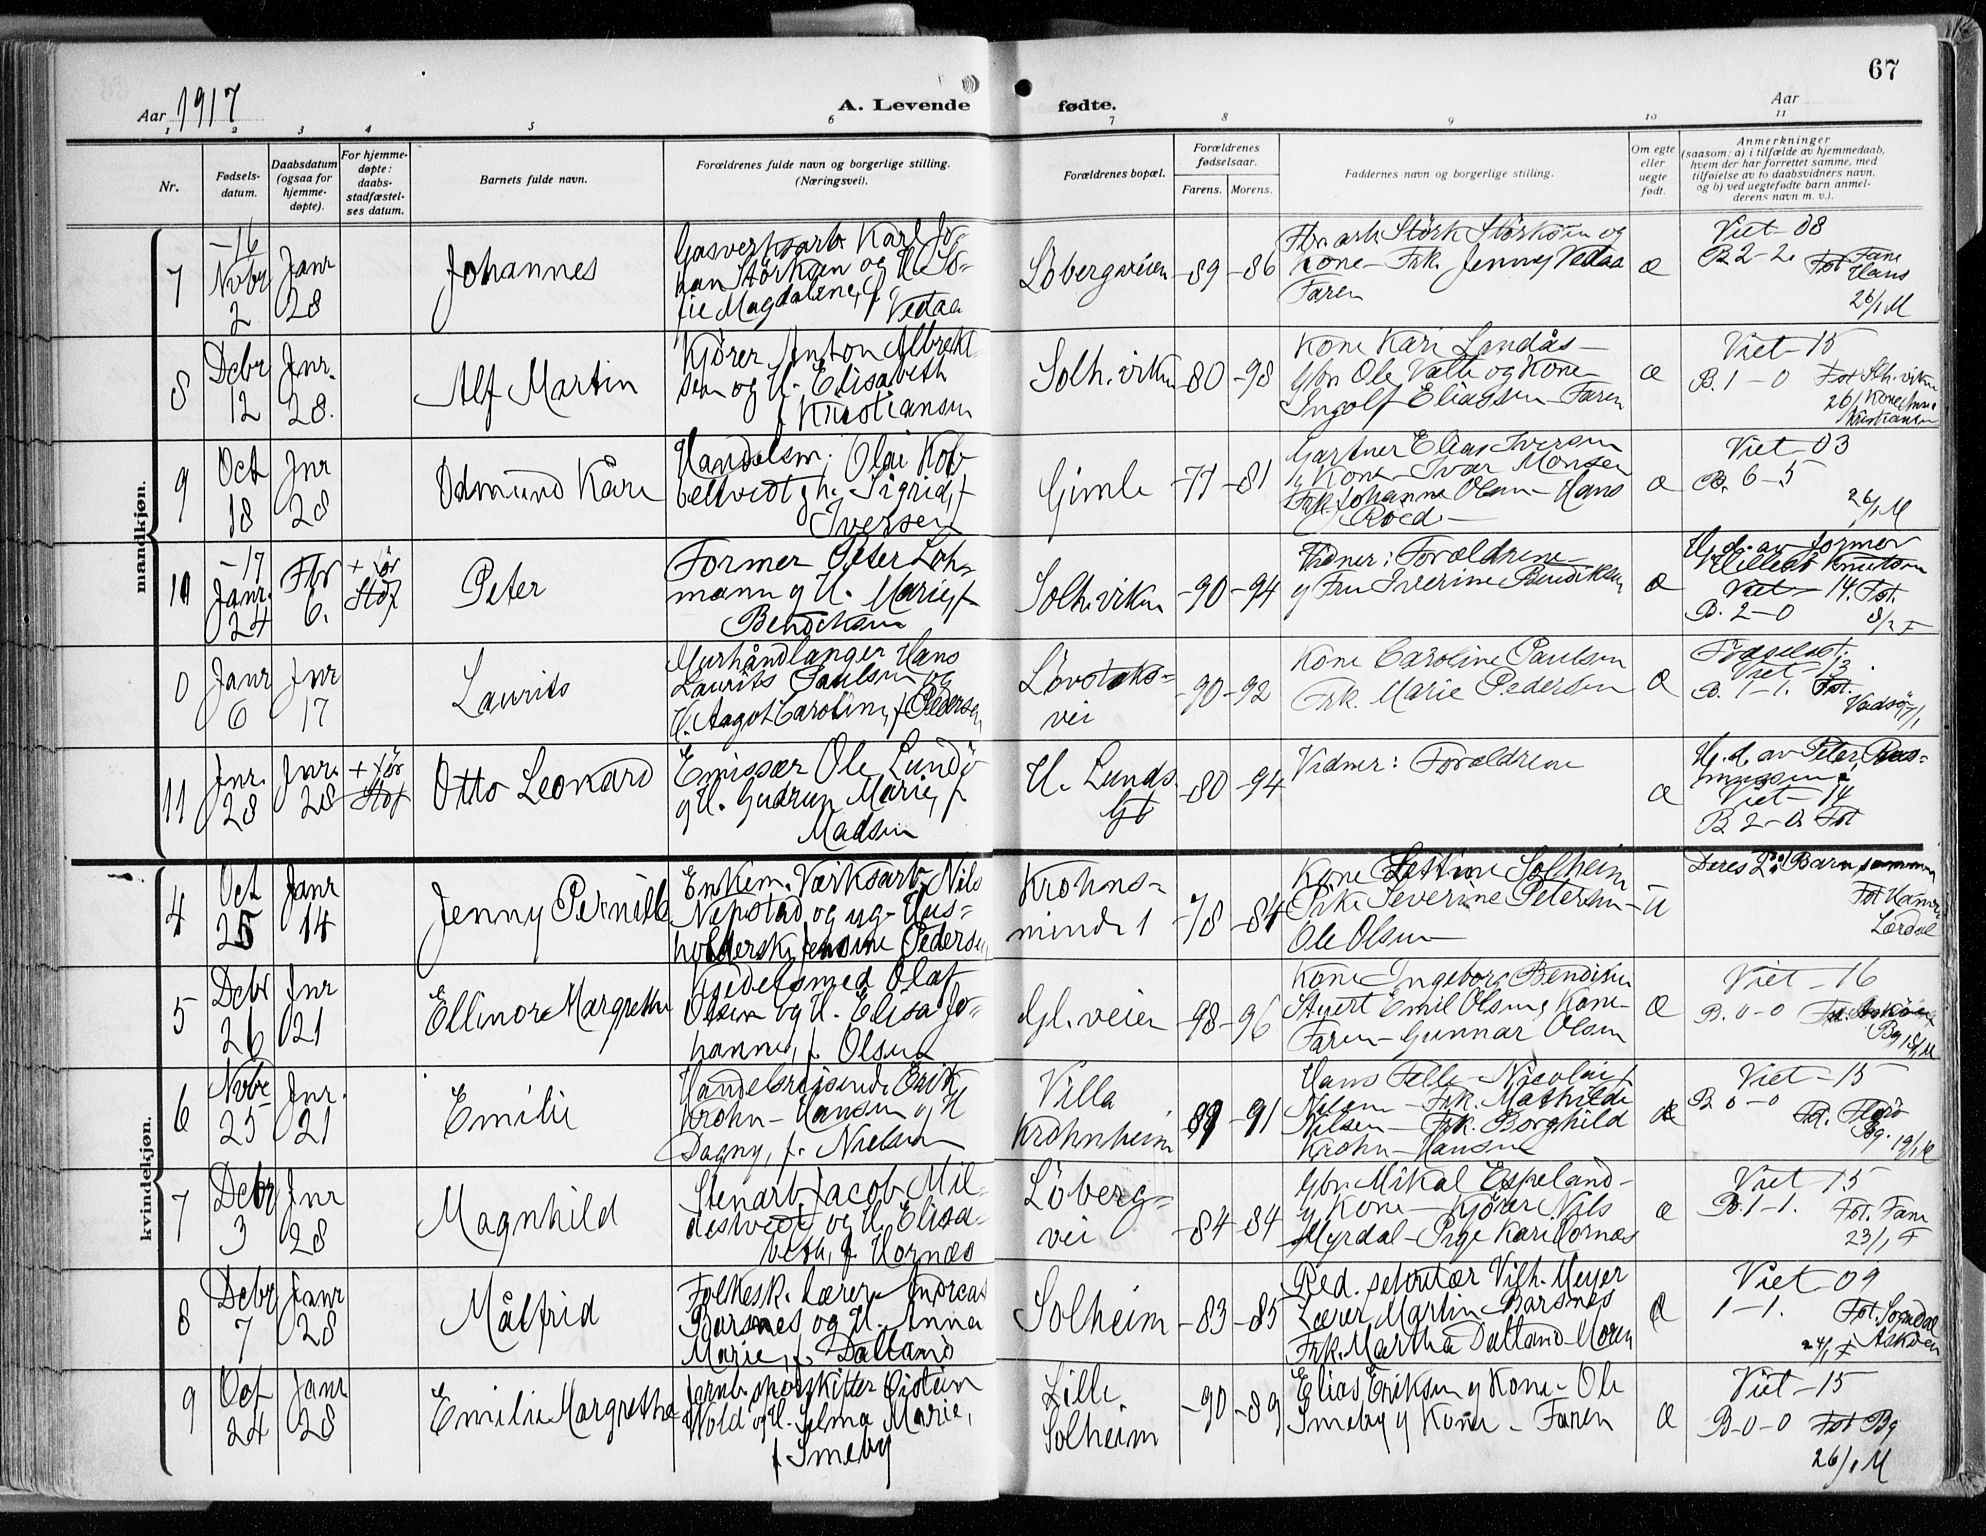 67
Aar 1917
A. Levende
fødte.
Aar
1 2 3 4 5 6 7 8 9 10 11
Nr.
Fødsels-
datum.
Daabsdatum
(ogsaa for
hjemme-
døpte).
For hjemme-
døpte:
daabs-
stadfæstel-
ses datum.
Barnets fulde navn.
Forældrenes fulde navn og borgerlige stilling.
(Næringsvei).
Forældrenes bopæl.
Forældrenes
fødselsaar.
Farens. Morens.
Faddernes navn og borgerlige stilling.
Om egte
eller
uegte
født.
Anmerkninger
(saasom: a) i tilfælde av hjemmedaab,
hvem der har forrettet samme, med
tilføielse av to daabsvidners navn,
og b) ved uegtefødte barn anmel-
derens navn m. v.).
mandkjøn.
7
-16
Novbr
2
Janr
28
Johannes
Gasverksarb. Karl Jo-
han Størksen og H. So-
fie Magdalene, f.
Vedaa
Løbergsveien
-89 -86
Fbr.arb. Størk Størksen og
Kone- Frk. Jenny Vedaa
Faren
æ
Viet- 08
B 2-2. Fst Fane
Hans
26/1 M
8
Decbr
12
Jnr.
28.
Alf Martin
Kjører Anton Albrekt-
sen og H. Elisabeth
f Kristiansen
Solh.viken
-80 -98
Kone Kari Landås-
Gbr. Ole Valle og Kone
Ingolf Eliassen- Faren
æ
Viet- 15
B. 1-0 Fst Slh.viken
26/1 Kone Anna
Kristiansen
9
Oct
18
Jnr
28
Odmund Kåre
Handelsm. Olai Kob-
beltvedt og h. Sigrid, f
Iversen
Gimle
-71 -81
Gartner Elias Iversen
og Kone- Ivar Monsen
Frk. Johanne Olsen- Hans
Røed-
æ
Viet- 03
B. 6-5
26/1 M
10
-17
Janr.
24
Fbr
6.
Peter
Former Peter Loh-
mann og H. Marie, f
Bendiksen
Solh.viken
-90 -94
Vidner: Forældrene-
og Fru Iverine Bendiksen
æ
H.d. av former
Knutsen
Viet- 14. Fst.
B. 2-0 8/2 F
0
Janr
6
Jnr
17
Laurits
Murhåndlanger Hans
Laurits Paulsen og
H. Aagot Caroline, f Pedersen
Løvstaks-
vei
-90 -92
Kone Caroline Paulsen
Frk. Marie Pedersen
æ
Viet- 13
B. 1-1. Fst.
Vadsø 7/1
11
Jnr.
28
Jnr.
28
Otto Leonard
Emissær Ole Lundø
og H. Gudrun Marie, f
Madsen
H. Lunds
Gt
-80 -94
Vidner: Forældrene
æ
H.d. av Peter Ras-
mussen
Viet- 14
B 2-0 Fst
kvindekjøn.
4
Oct
25
Janr
14
Jenny Pernille
Enkem. Værksarb. Nils
Nepstad og ug. Hus-
holdersk. Jensine Pedersen
Krohns-
minde 1
-78 -84
Kone Solheim
Pike Severine Petersen-
Ole Olsen
u
Deres 2. Barn sammen
Fst Hamre
Lærdal
5
Decbr
26
Jnr
21
Ellinor Margrethe
Kjedelsmed Olaf
Olsen og H. Elisa Jo-
hanne, f. Olsen
Gl.veien
-98 -96
Kone Ingeborg Bendiksen
Stuert Emil Olsen og Kone-
Faren- Gunnar Olsen
æ
Viet- 16
B. 0-0 Fst. Askøen
Bg 18/1 M
6
Novbr
25
Jnr.
21
Emilie
Handelsreisende Erik
Krohn-Hansen og H
Dagny, f. Nielsen
Villa
Krohnheim
-89 -91
Hans Felle- Nicolai
Nilsen- Frk. Mathilde
Nilsen- Frk. Borghild
Krohn-Hansen
æ
Viet- 15
B 0-0
Bg. 19/1 M
7
Decbr
3
Jnr
28
Magnhild
Stenarb. Jacob Mil-
destvedt og H. Elisa-
beth, f. Hornæs
Løberg-
vei
-84 -84
Gbr Mikal Espeland-
og Kone- Kjører Nils
Myrdal- Pige Kari Hornæs
æ
Viet- 15
B. 1-1. Fst. Fane
23/1 F
8
Decbr
7
Janr
28
Målfrid
Folkesk.lærer Andreas
Barsnes og H. Anna
Marie, f. Dalland
Solheim
-83 -85
Red. sekretær Vilh. Meyer
Lærer Martin Barsnes
Frk. Martha Dalland- Moren
æ
Viet- 09
1-1. Fst. Sogndal
24/1 F Askøen
9
Oct
24
Janr
28
Emilie Margrethe
Jarnb.sporskifter Øistein
Wold og H. Selma Marie,
f Smeby
Lille
Solheim
-90 -89
Elias Eriksen og Kone- Ole
Smeby og Kone- Faren
æ
Viet- 15
B-0-0 Fst Bg
26/1 M